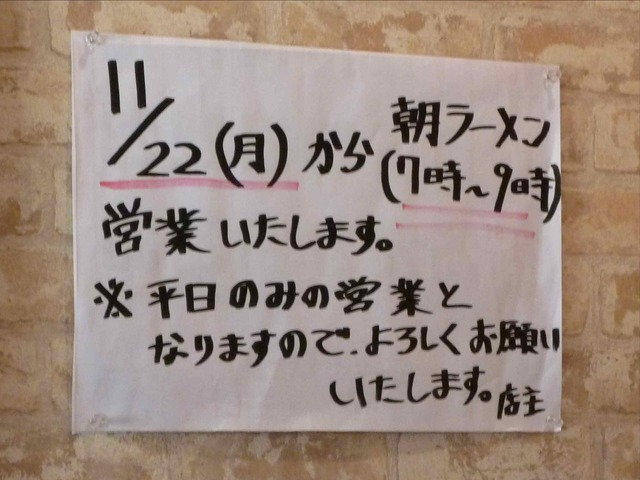 11/22(月)から 朝ラーメン
(7時~9時)
営業いたします。
※平日のみの営業と
なりますので、よろしくお願い
いたします。店主